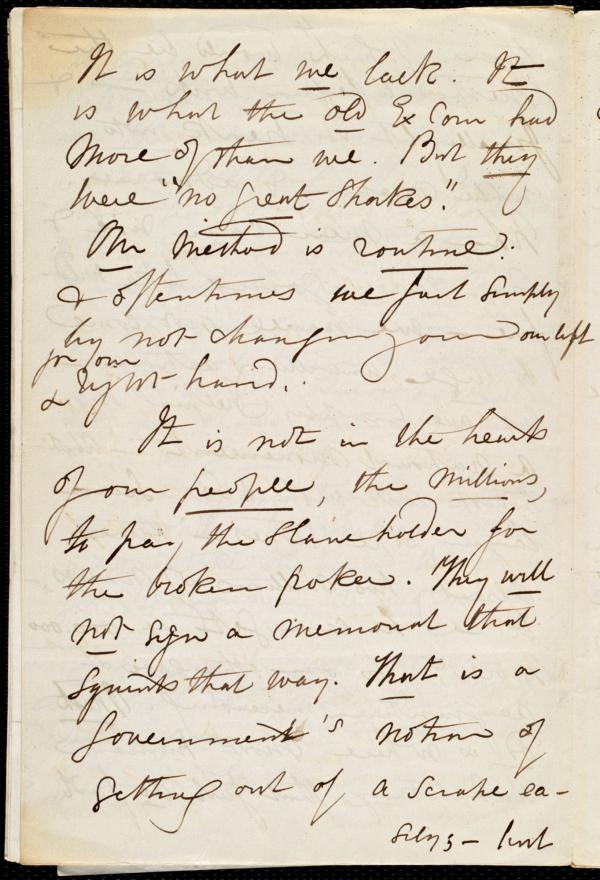 It is what we lack. It
is what the old Ex Com had
more of than we. But they
were "no great Shakes".
Our method is routine:
& oftentimes we fail simply
by not changing our left
for our
& right hand.
It is not in the hearts
of our people, the millions,
to pay the slaveholder for
the broken poker. They will
not sign a memorial that
squints that way. That is a
Government's notion of
getting out of a scrape ea-
sily; – but